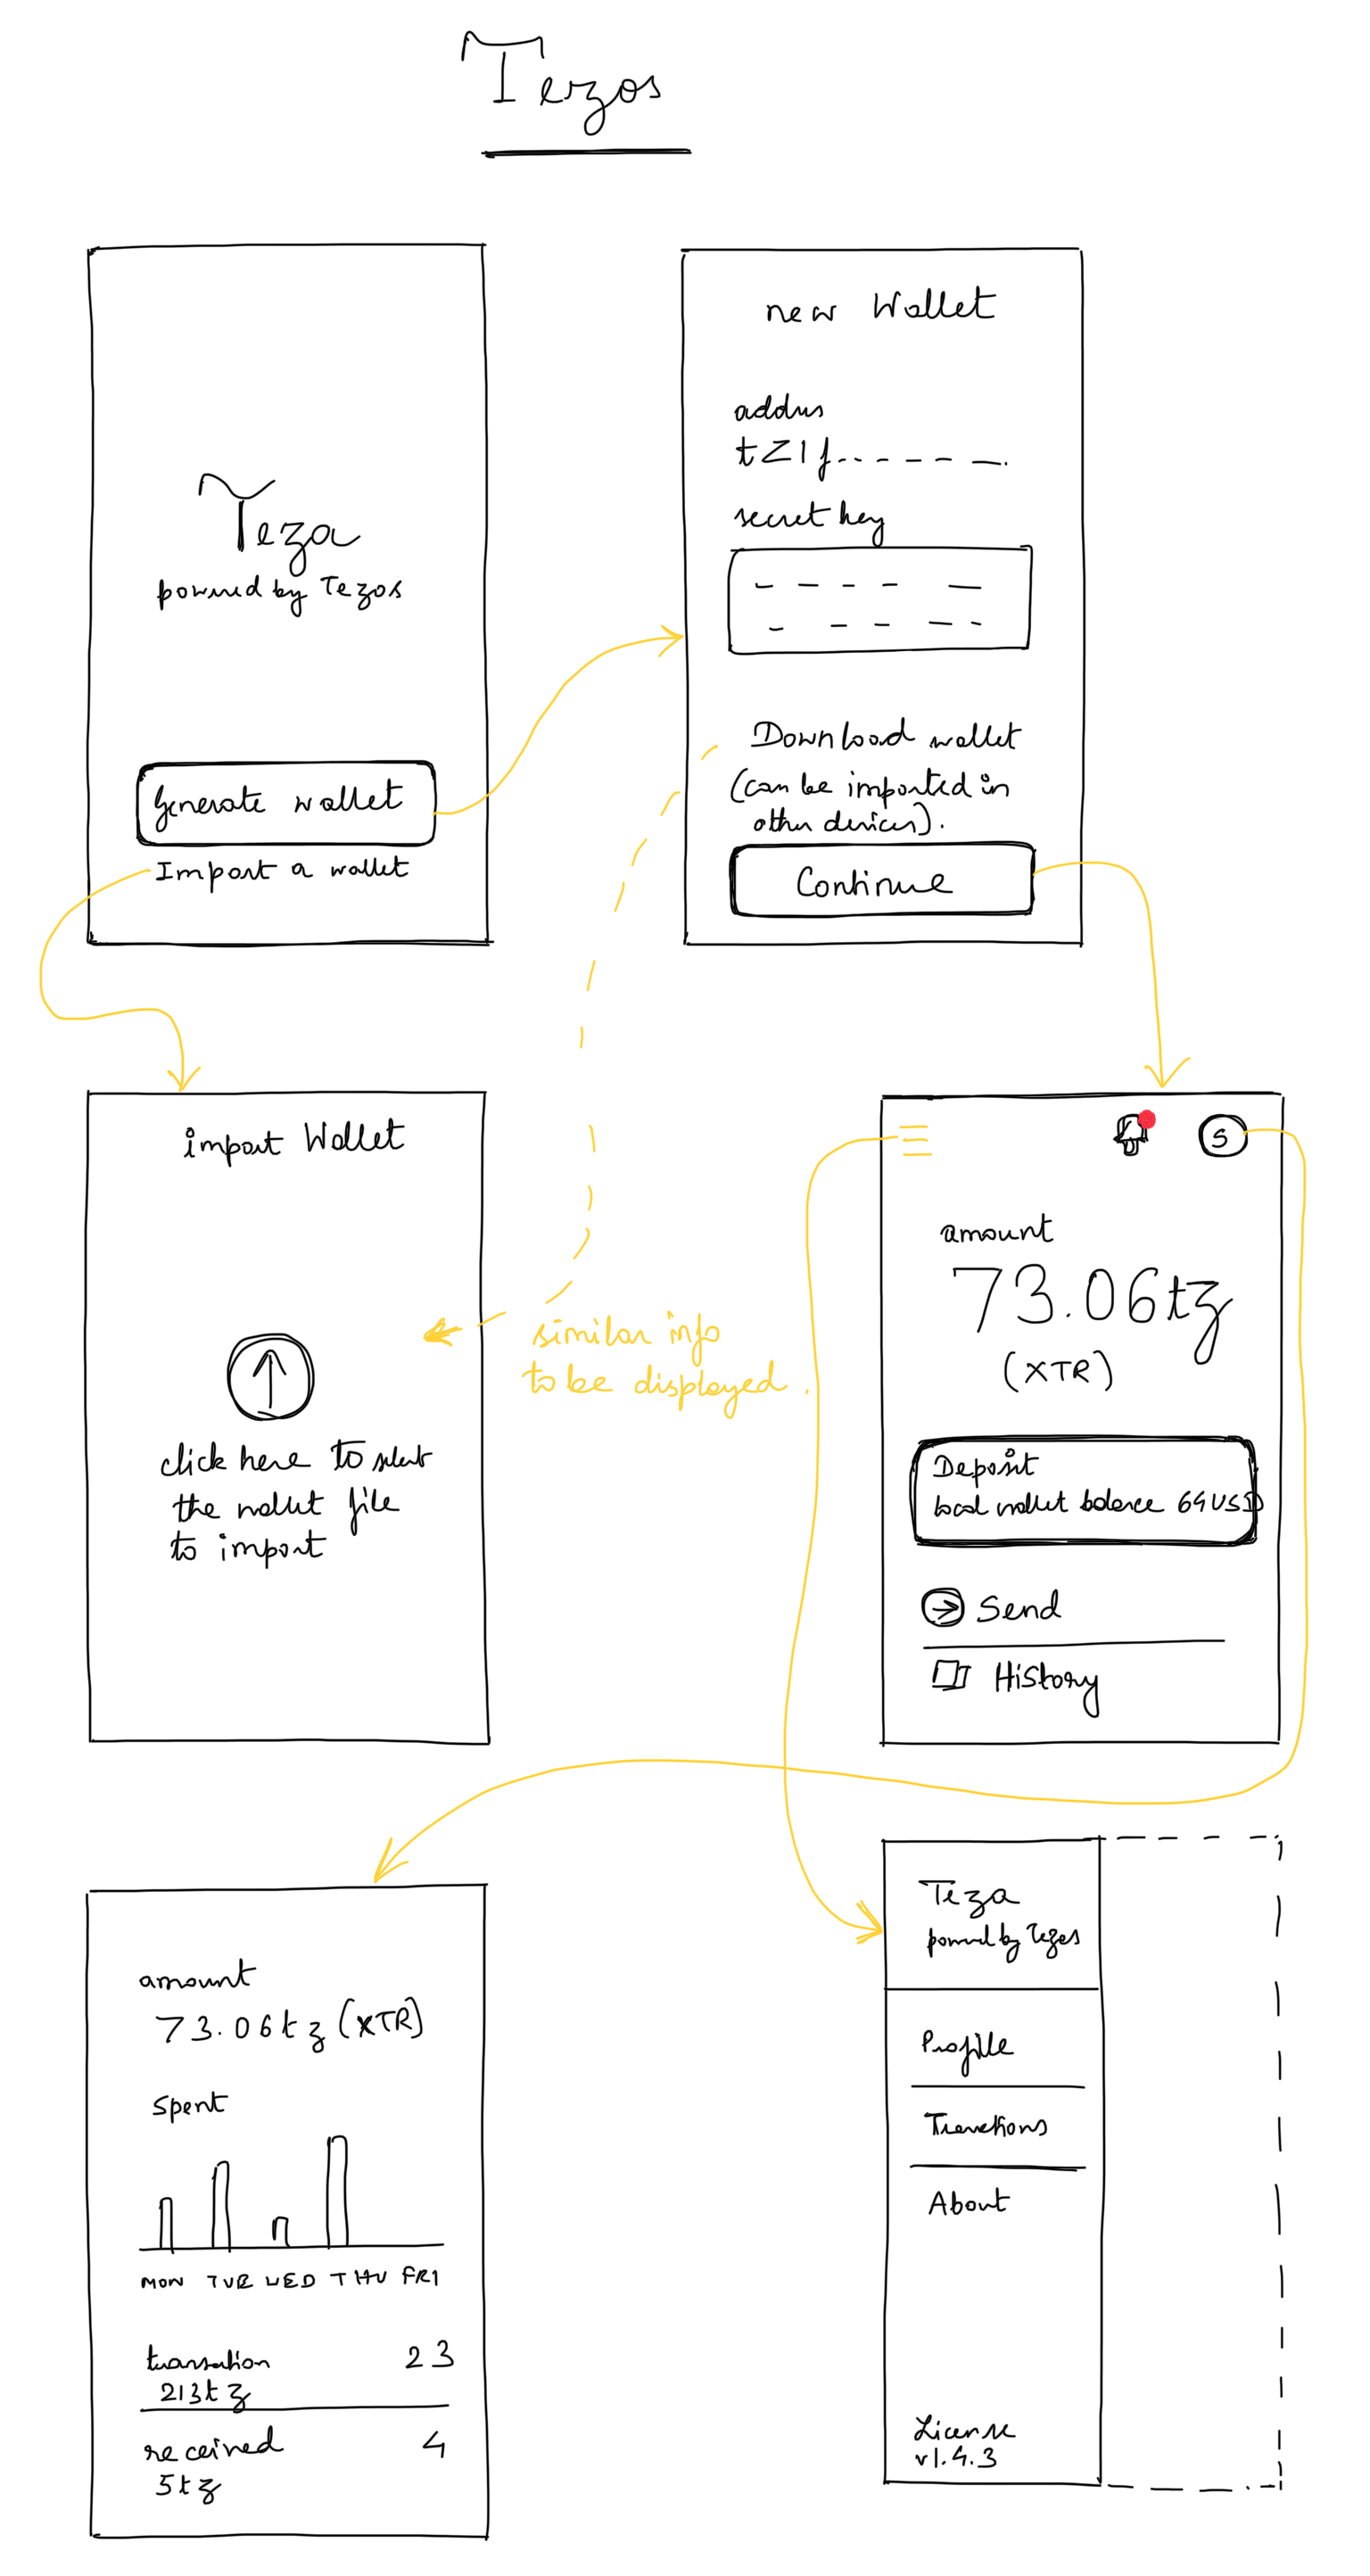 Tezos
Teza
powered by Tezos
Generate wallet
Import a wallet
new Wallet
address
tz1f
secret key
Download wallet
(can be imported in
other devices).
Continue
import Wallet
click here to select
the wallet file
to import
similar info
to be displayed.
S
amount
73.06tz
(XTR)
Deposit
local wallet balance 64USD
Send
History
amount
73.06tz (XTR)
spent
MON TUE WED THU FRI
transation 23
213tz
received 4
5tz
Teza
powered by Tezos
Profile
About
License
v1.4.3